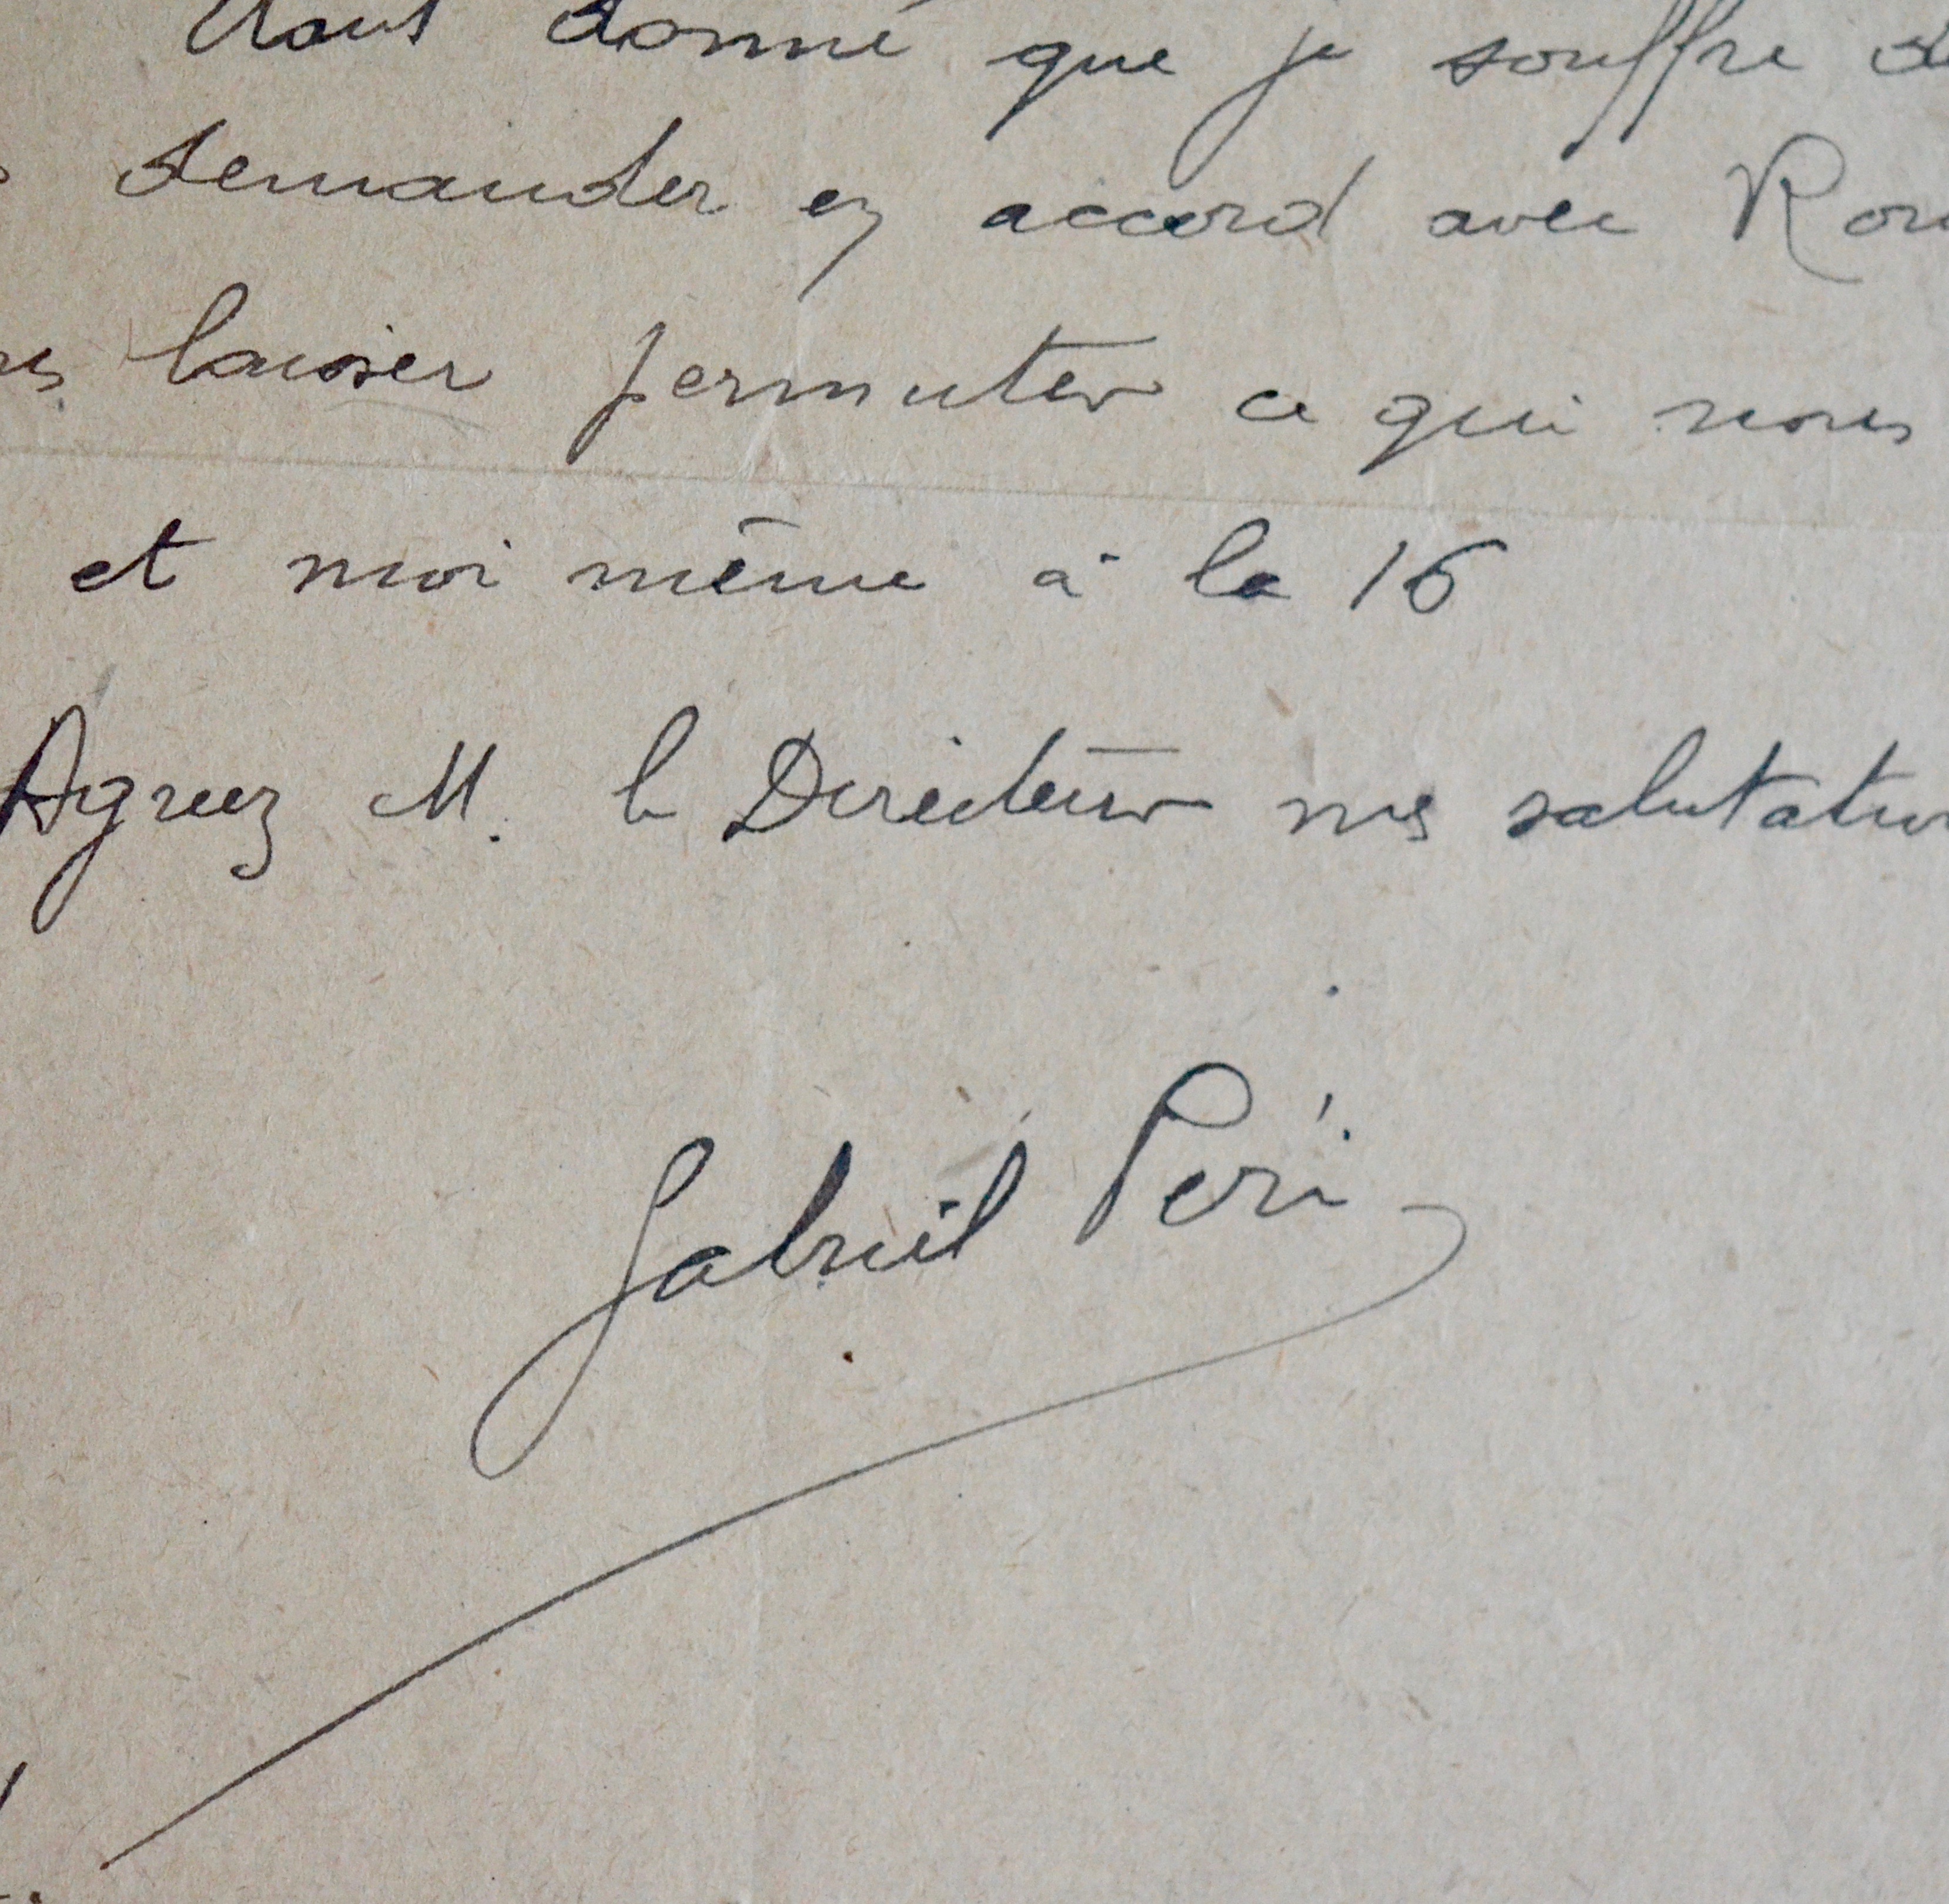 étant donné que je souffre d
demander en accord avec Rou
laisser permuter ce qui nous
et moi même à la 16
Agréez M. le Directeur mes salutation
Gabriel Péri